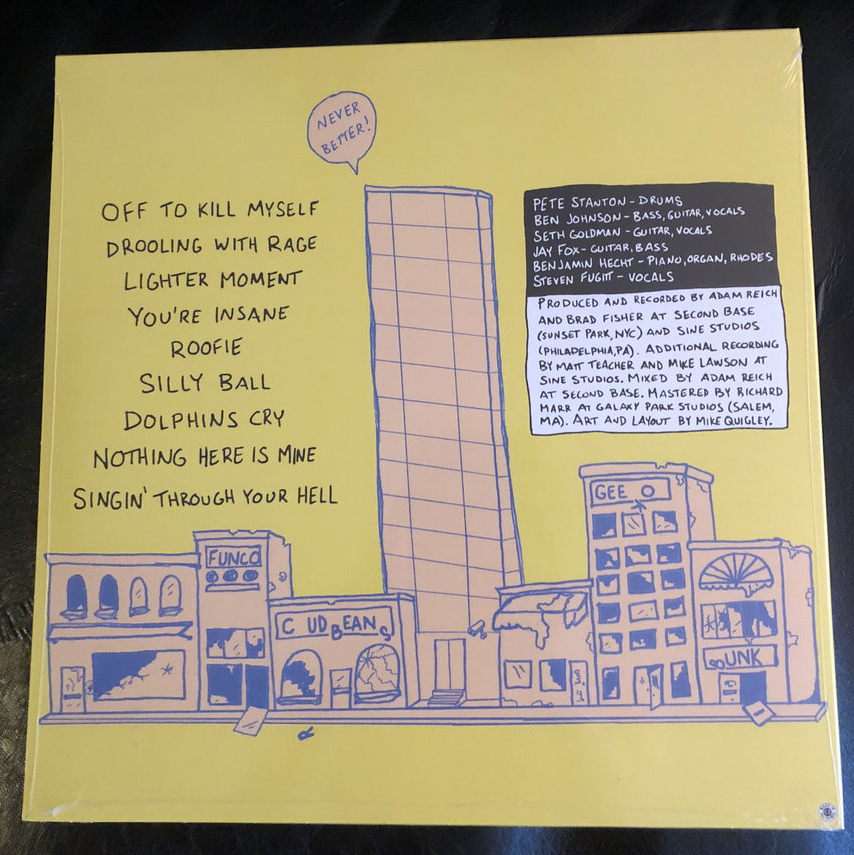 NEVER
BETTER!
OFF TO KILL MYSELF
DROOLING WITH RAGE
LIGHTER MOMENT
YOU'RE INSANE
ROOFIE
SILLY BALL
DOLPHINS CRY
NOTHING HERE IS MINE
SINGIN' THROUGH YOUR HELL
PETE STANTON - DRUMS
BEN JOHNSON - BASS, GUITAR, VOCALS
SETH GOLDMAN - GUITAR, VOCALS
JAY FOX - GUITAR, BASS
BENJAMIN HECHT - PIANO, ORGAN, RHODES
STEVEN FUGITT - VOCALS
PRODUCED AND RECORDED BY ADAM REICH
AND BRAD FISHER AT SECOND BASE
(SUNSET PARK, NYC) AND SINE STUDIOS
(PHILADELPHIA, PA). ADDITIONAL RECORDING
BY MATT TEACHER AND MIKE LAWSON AT
SINE STUDIOS. MIXED BY ADAM REICH
AT SECOND BASE. MASTERED BY RICHARD
MARR AT GALAXY PARK STUDIOS (SALEM,
MA). ART AND LAYOUT BY MIKE QUIGLEY.
GEE O
FUNCO
C UDBEANS
UNK
R